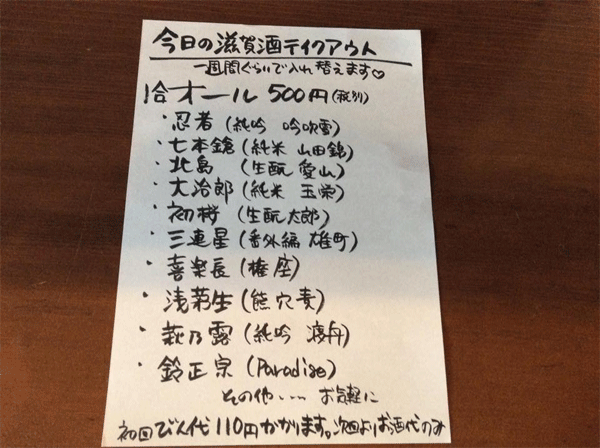 今日の滋賀酒テイクアウト
一週間ぐらいで入れ替えます♡
1合オール500円(税別)
・忍者(純吟 吟吹雪)
・七本鎗(純米 山田錦)
・北島(生酛 愛山)
・大治郎(純米 玉栄)
・初桜(生酛太郎)
・三連星(番外編 雄町)
・喜楽長(権座)
・浅茅生(熊穴麦)
・萩乃露(純吟 渡舟)
・鈴正宗(Paradise)
その他・・・・ お気軽に
初回びん代110円かかります。次回よりお酒代のみ